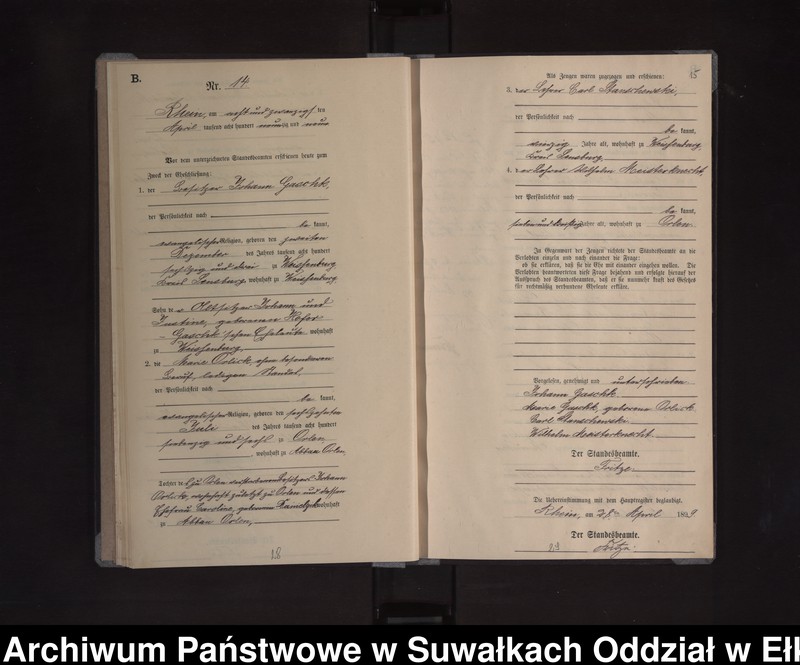 B.
Nr. 14
Rhein, am acht und zwanzigsten
April tausend acht hundert neunzig und neun
Vor dem unterzeichneten Standesbeamten erschienen heute zum
Zweck der Eheschließung:
1. der Besitzer Johann Gaschk,
der Persönlichkeit nach
be kannt,
evangelischer Religion, geboren den zweiten
Dezember des Jahres tausend acht hundert
sechzig und drei zu Weissenburg
Kreis Sensburg, wohnhaft zu Weissenburg
Sohn des Altsitzer Johann und
Justine, geborenen
Gaschk'schen Eheleute wohnhaft
zu Weissenburg
2. die Marie Orlick, ohne besonderen
Beruf, ledigen Standes,
der Persönlichkeit nach
be kannt,
evangelischer Religion, geboren den sechzehnten
Juli des Jahres tausend acht hundert
siebenzig und sechs zu Orlen
, wohnhaft zu Abbau Orlen,
Tochter des zu Orlen verstorbenen Besitzers Johann
Orlick, wohnhaft zuletzt zu Orlen und dessen
Ehefrau Caroline, geborene wohnhaft
zu Abbau Orlen,
18
15
Als Zeugen waren zugezogen und erschienen:
3. der Lehrer Carl
der Persönlichkeit nach
be kannt,
Jahre alt, wohnhaft zu Weissenburg,
Kreis Sensburg
4. der Lehrer Wilhelm Meisterknecht,
der Persönlichkeit nach
be kannt,
sieben und dreißig Jahre alt, wohnhaft zu Orlen
In Gegenwart der Zeugen richtete der Standesbeamte an die
Verlobten einzeln und nach einander die Frage:
ob sie erklären, daß sie die Ehe mit einander eingehen wollen. Die
Verlobten beantworteten diese Frage bejahend und erfolgte hierauf der
Ausspruch des Standesbeamten, daß er sie nunmehr kraft des Gesetzes
für rechtmäßig verbundene Eheleute erkläre.
Vorgelesen, genehmigt und unterschrieben
Johann Gaschk
Marie Gaschk, geborene Orlick
Carl
Wilhelm Meisterknecht
Der Standesbeamte.
Fritze.
Die Uebereinstimmung mit dem Hauptregister beglaubigt.
Rhein, am 28ten April 1899
Der Standesbeamte.
Fritze.
Archiwum Państwowe w Suwałkach Oddział w Ełk